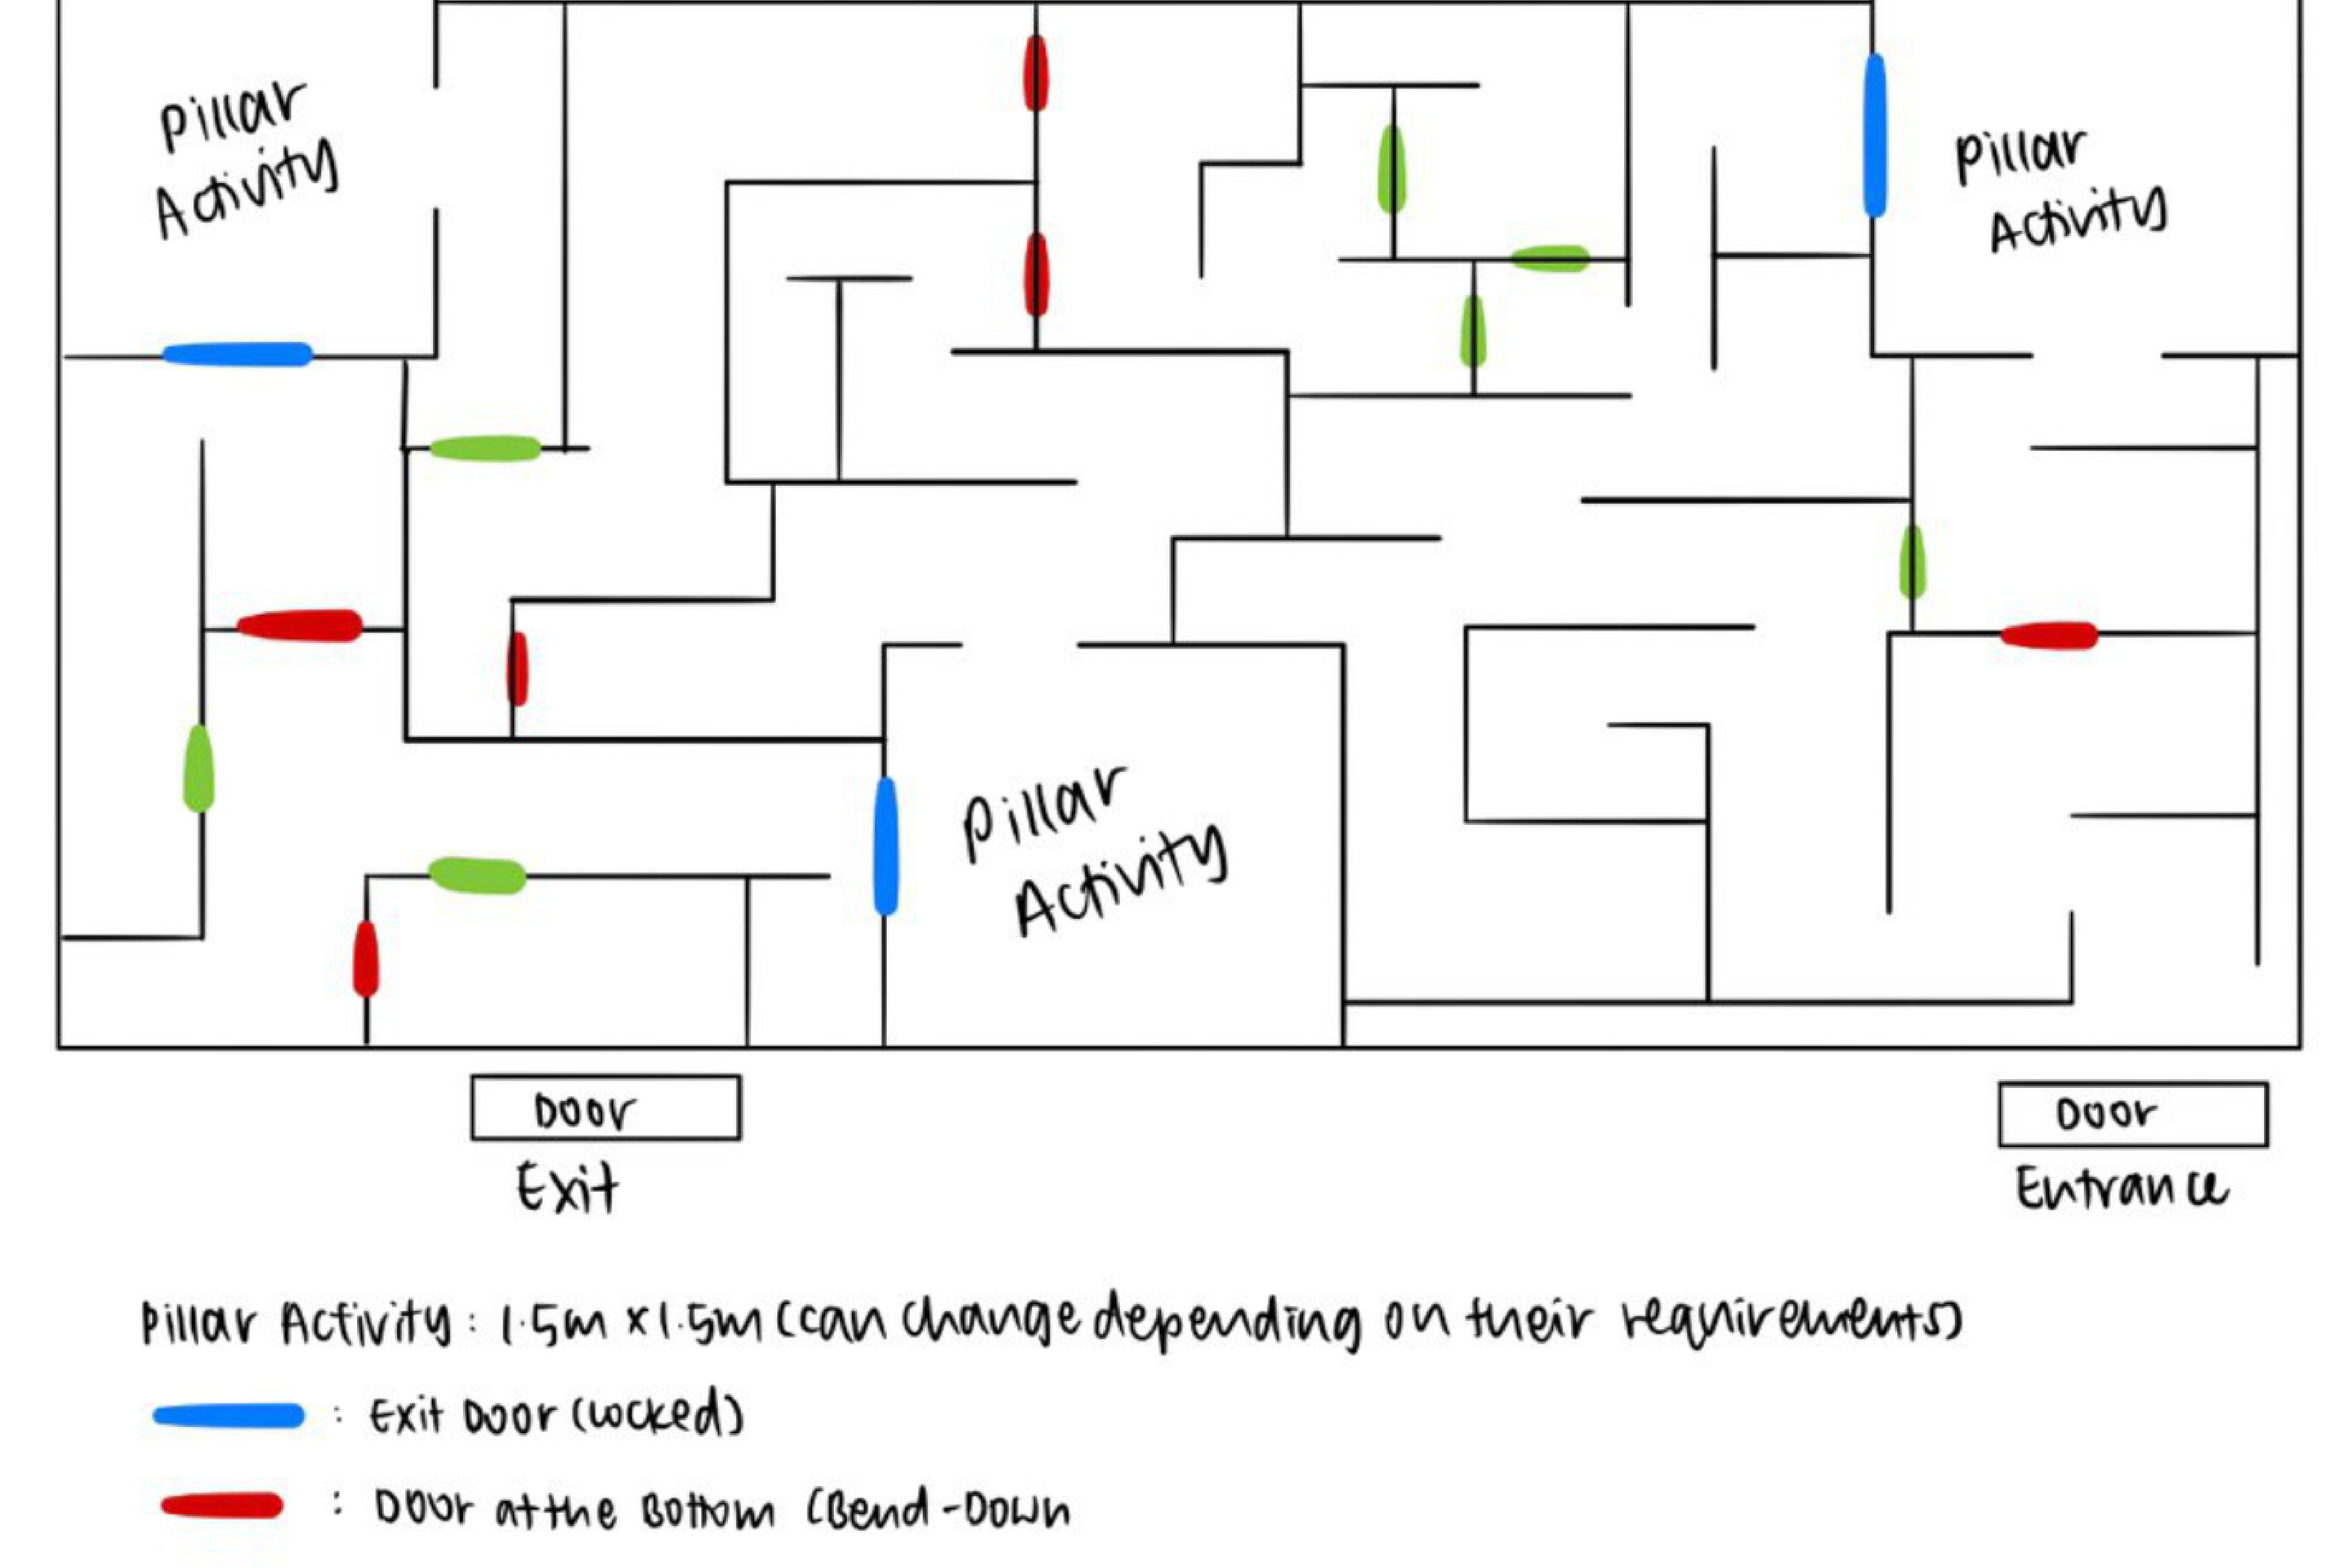 Pillar
Activity
Pillar
Activity
Pillar
Activity
Door
Exit
Door
Entrance
Pillar Activity : 1.5m x 1.5m (can change depending on their requirements)
: Exit Door (Locked)
: Door at the Bottom (Bend-Down